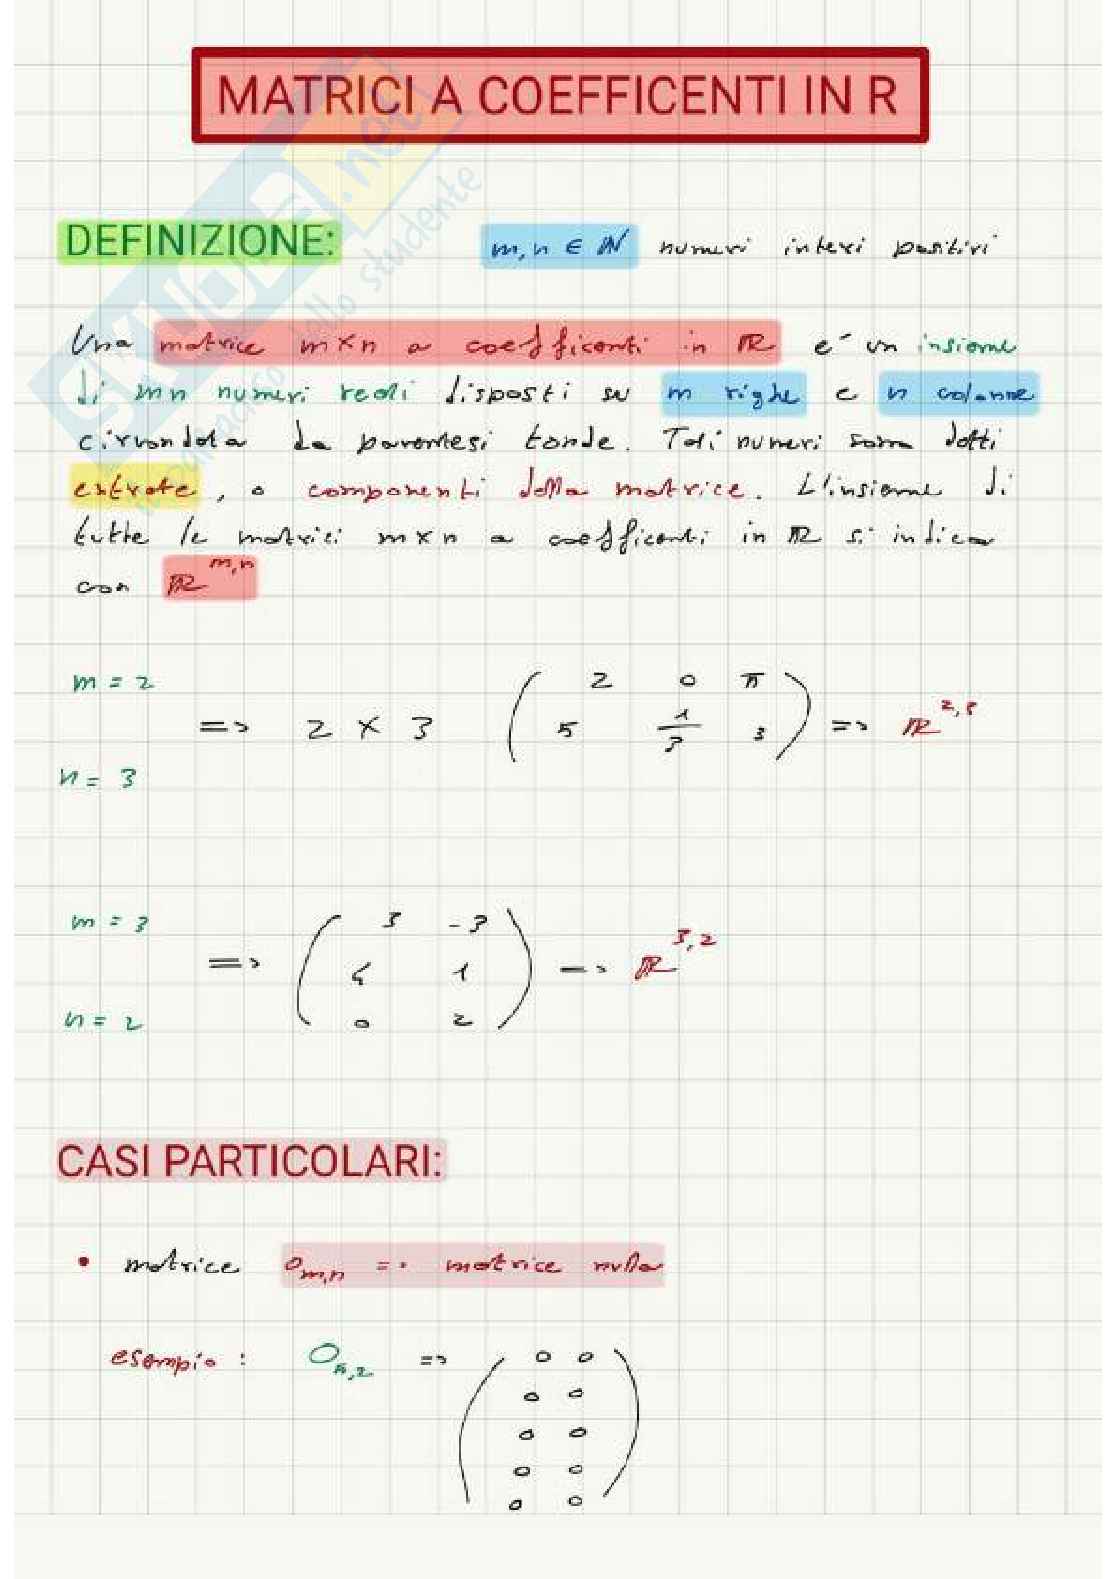 MATRICI A COEFFICENTI IN R
DEFINIZIONE: m,n ∈ ℕ numeri interi positivi
Una matrice m×n a coefficenti in ℝ e' un insieme
di mn numeri reali disposti su m righe e n colonne
circondata da parentesi tonde. Tali numeri sono detti
entrate, o componenti della matrice. L'insieme di
tutte le matrici m×n a coefficenti in ℝ si indica
con ℝ^m,n
m = 2
2 0 π
=> 2 × 3 ( 5 1/3 3 ) => ℝ^2,3
n = 3
m = 3
3 -3
=> ( 4 1 ) => ℝ^3,2
0 2
n = 2
CASI PARTICOLARI:
• matrice 0m,n => matrice nulla
esempio : 05,2 => ( 0 0
0 0
0 0
0 0
0 0 )
SKUOLA.net